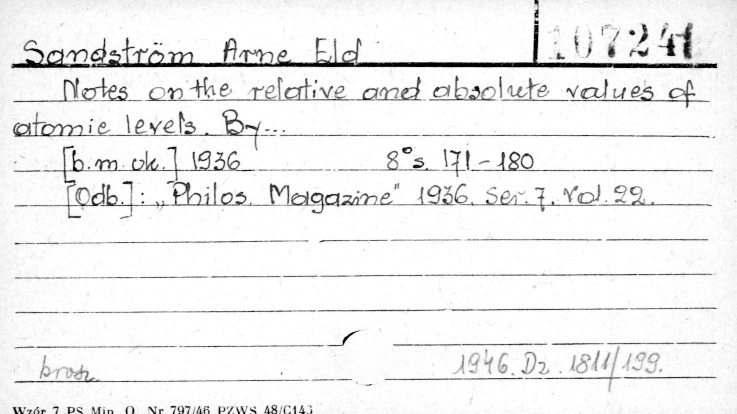 Sandström Arne Eld
107241
Notes on the relative and absolute values of
atomic levels. By...
[b.m. ok.] 1936 8° s. 171-180
[Odb.]: „Philos. Magazine" 1936. Ser. 7. Vol. 22.
brosz.
1946. Dz. 1811/199.
Wzór 7 PS Min. O. Nr 797/46 PZWS 48/G143